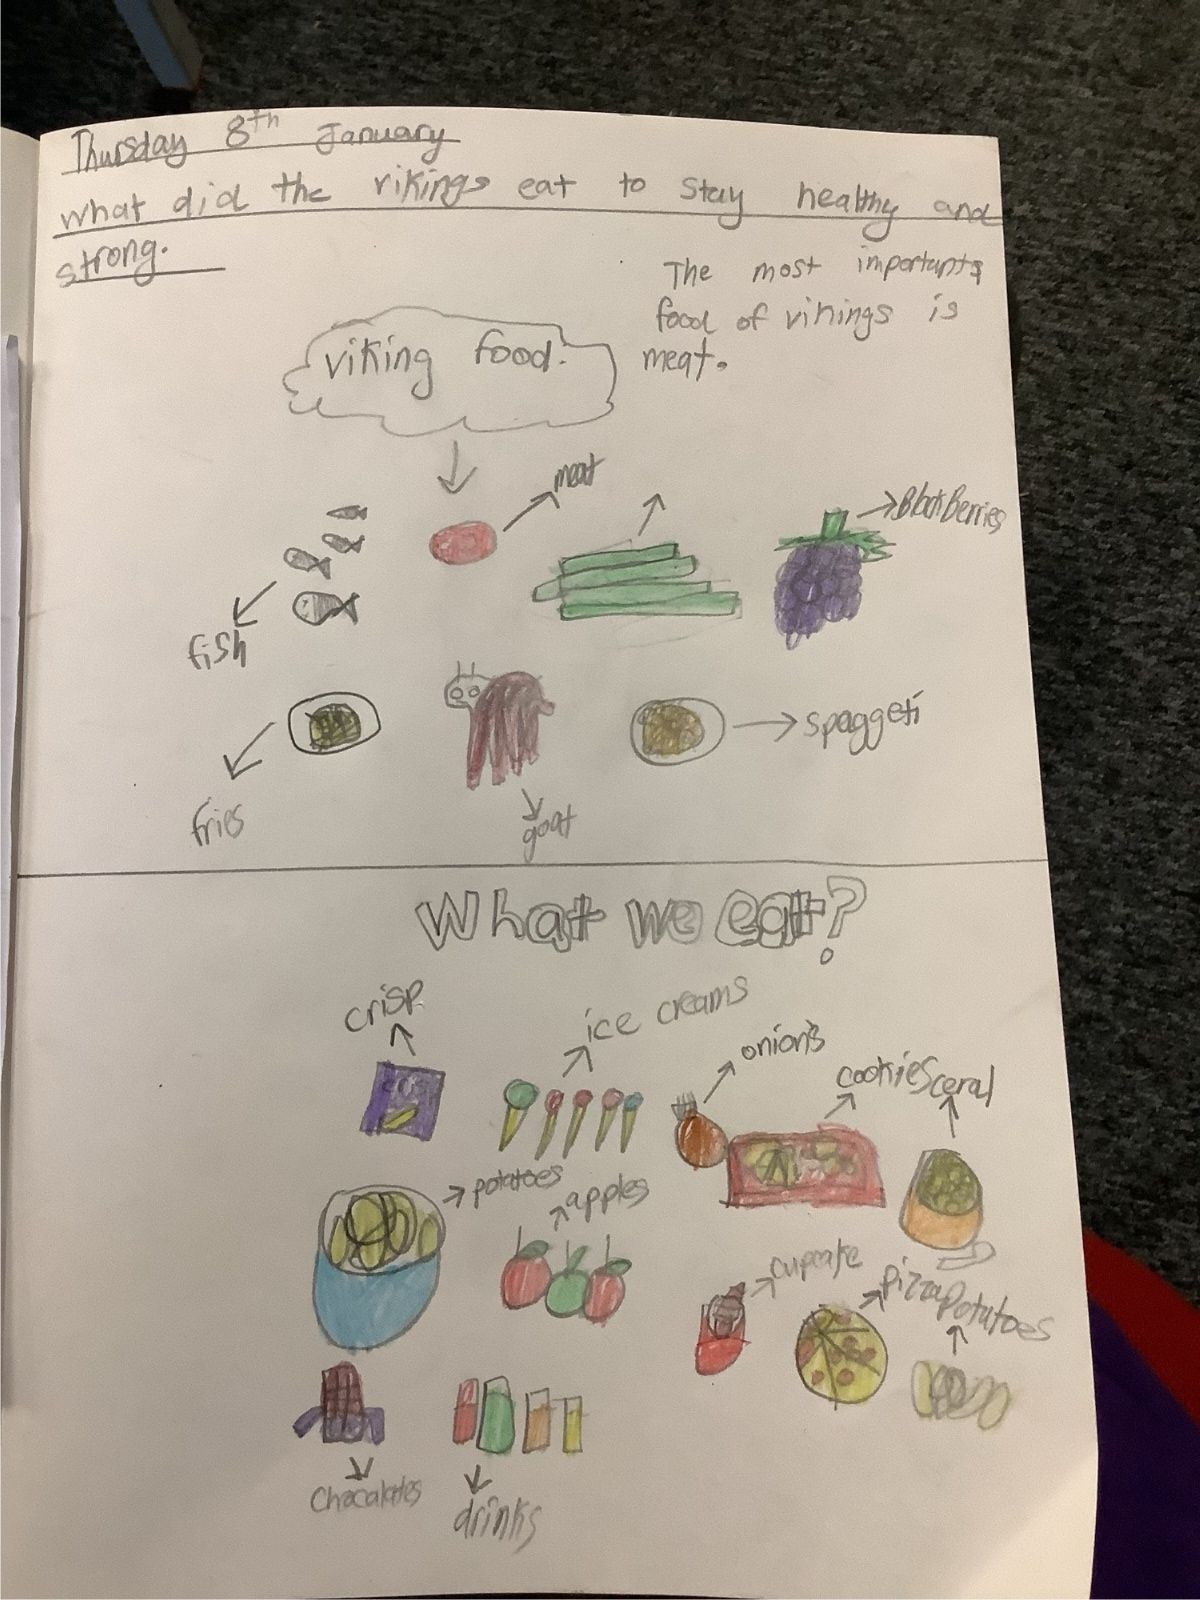 Thursday 8th January
what did the vikings eat to stay healthy and
strong.
The most importants
food of vikings is
meat.
viking food.
meat
BlakBerries
fish
spaggeti
fries
goat
What we eat?
crisp
ice creams
onions
cookies
ceral
potatoes
apples
cupcake
pizza
potatoes
chocalates
drinks